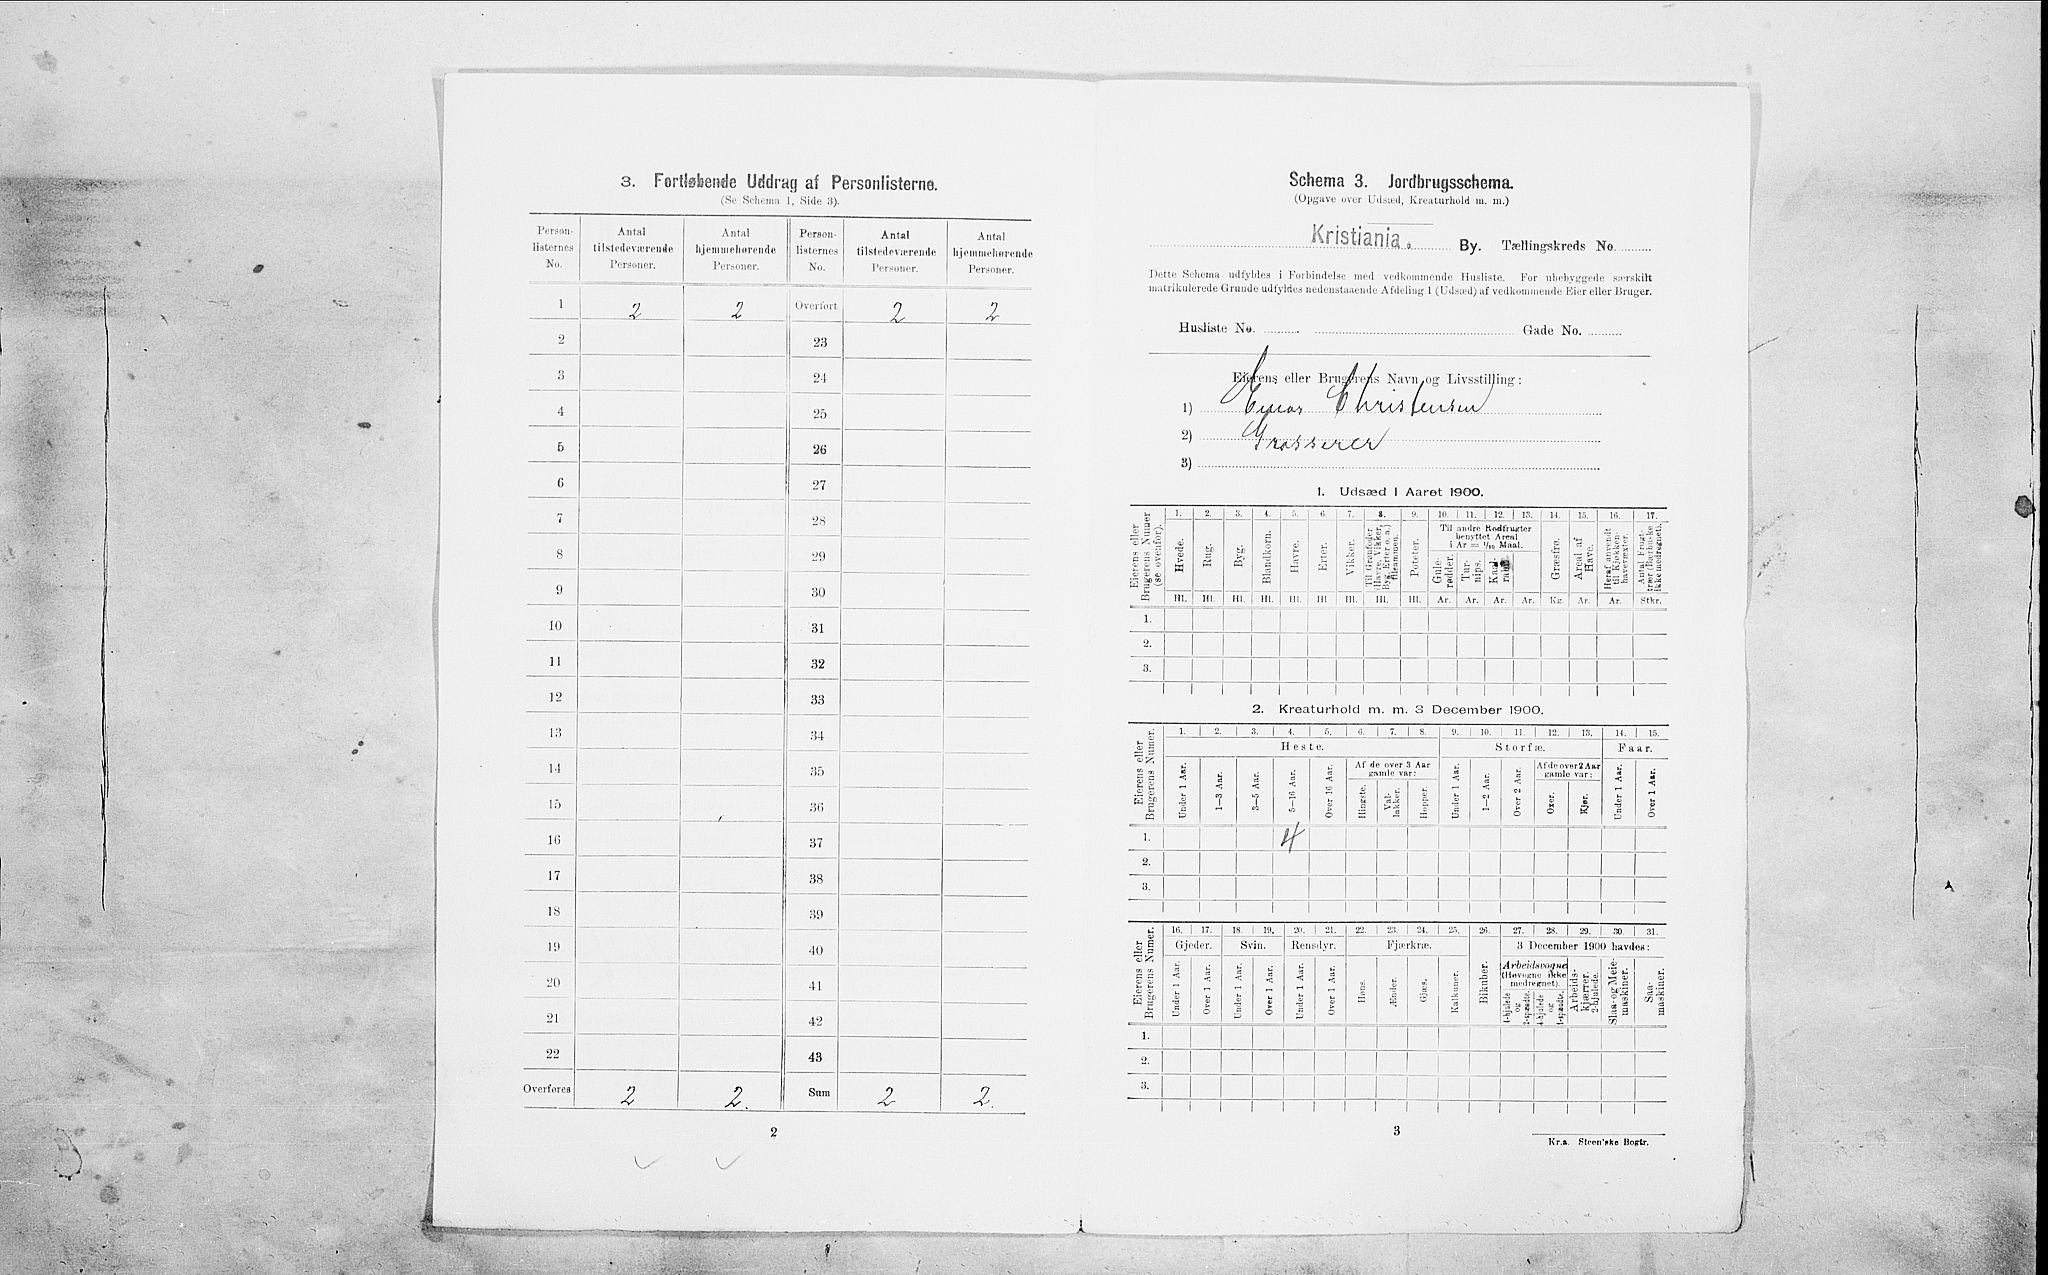 3. Fortløbende Uddrag af Personlisterne.
(Se Schema 1, Side 3).
Person-listernes No. Antal tilstedeværende Personer. Antal hjemmehørende Personer. Person-listernes No. Antal tilstedeværende Personer. Antal hjemmehørende Personer.
1 2 2 Overført 2 2
2 23
3 24
4 25
5 26
6 27
7 28
8 29
9 30
10 31
11 32
12 33
13 34
14 35
15 36
16 37
17 38
18 39
19 40
20 41
21 42
22 43
Overføres 2 2. Sum 2 2.
2
Schema 3. Jordbrugsschema.
(Opgave over Udsæd, Kreaturhold m. m.)
Kristiania. By. Tællingskreds No
Dette Schema udfyldes i Forbindelse med vedkommende Husliste. For ubebyggede særskilt
matrikulerede Grunde udfyldes nedenstaaende Afdeling 1 (Udsæd) af vedkommende Eier eller Bruger.
Husliste No. Gade No.
Eierens eller Brugerens Navn og Livsstilling:
1) Christensen
2) Grosserer
3)
1. Udsæd i Aaret 1900.
Eierens eller Brugerens Numer (se ovenfor).
1. 2. 3. 4. 5. 6. 7. 8. 9. 10. 11. 12. 13. 14. 15. 16. 17.
Til andre Rodfrugter benyttet Areal i Ar = 1/10 Maal.
Hvede. Rug. Byg. Blandkorn. Havre. Erter. Vikker. Til Grønfoder (Havre, Vikker, Byg, Erter o. a.) Poteter. Gule-rødder. Tur-nips. Græsfrø. Areal af Have. Heraf anvendt til Kjøkken-havevæxter. Antal Frugt-trær (Bærbuske ikke medregnet).
Hl. Hl. Hl. Hl. Hl. Hl. Hl. Hl. Hl. Ar. Ar. Ar. Ar. Kg. Ar. Ar. Stkr.
1.
2.
3.
2. Kreaturhold m. m. 3 December 1900.
Eierens eller Brugerens Numer.
1. 2. 3. 4. 5. 6. 7. 8. 9. 10. 11. 12. 13. 14. 15.
Heste. Storfæ. Faar.
Af de over 3 Aar gamle var: Af de over 2 Aar gamle var:
Under 1 Aar. 1—3 Aar. 3—5 Aar. 5—16 Aar. Over 16 Aar. Hingste. Val-lakker. Hopper. Under 1 Aar. 1—2 Aar. Over 2 Aar. Oxer. Kjør. Under 1 Aar. Over 1 Aar.
1. 4
2.
3.
Eierens eller Brugerens Numer.
16. 17. 18. 19. 20. 21. 22. 23. 24. 25. 26. 27. 28. 29. 30. 31.
Gjeder. Svin. Rensdyr. Fjærkræ. 3 December 1900 havdes:
Arbeidsvogne (Høvogne ikke medregnet).
Under 1 Aar. Over 1 Aar. Under 1 Aar. Over 1 Aar. Under 1 Aar. Over 1 Aar. Høns. Ænder. Gjæs. Kalkuner. Bikuber. 4-hjulede og 2-spændte. 4-hjulede og 1-spændte. Arbeids-kjærrer, 2-hjulede. Slaa- og Meie-maskiner. Saa-maskiner.
1.
2.
3.
3
Kr.a. Steen'ske Bogtr.